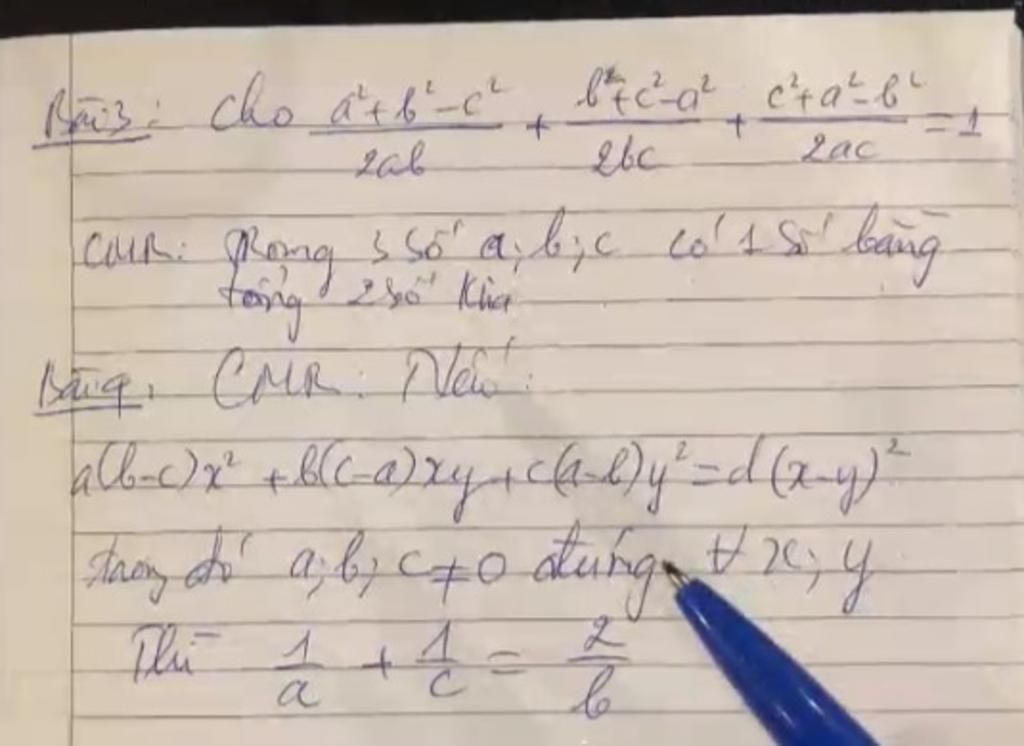 Bài 3: Cho (a²+b²-c²)/2ab + (b²+c²-a²)/2bc + (c²+a²-b²)/2ac = 1
CMR: Trong 3 số a; b; c có 1 số bằng
tổng 2 số kia
Bài 4: CMR: Nếu:
a(b-c)x² + b(c-a)xy + c(a-b)y² = d(x-y)²
trong đó a; b; c ≠ 0 đúng ∀ x; y
Thì 1/a + 1/c = 2/b